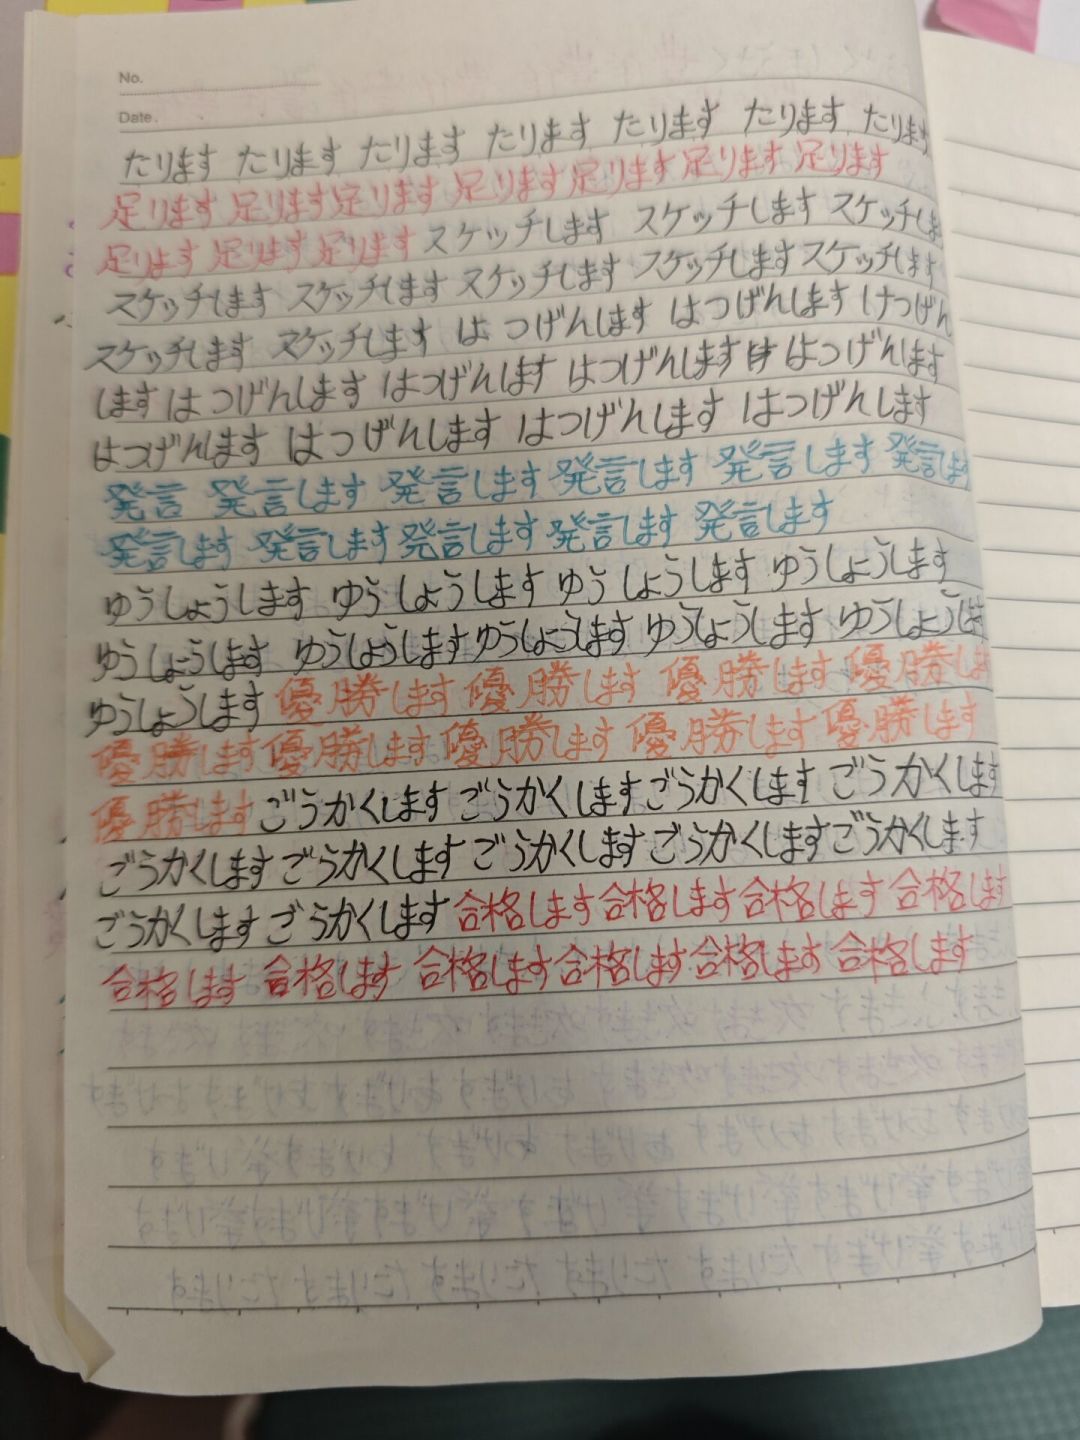 No.
Date.
たります たります たります たります たります たります たります
足ります 足ります 足ります 足ります 足ります 足ります 足ります
足ります 足ります 足ります スケッチします スケッチします スケッチしま
スケッチします スケッチします スケッチします スケッチします スケッチします
スケッチします スケッチします はつげんします はつげんします けつげん
します はつげんします はつげんします はつげんします はつげんします
はつげんします はつげんします はつげんします はつげんします
発言 発言します 発言します 発言します 発言します 発言します
発言します 発言します 発言します 発言します 発言します
ゆうしょうします ゆうしょうします ゆうしょうします ゆうしょうします
ゆうしょうします ゆうしょうします ゆうしょうします ゆうしょうします ゆうしょうします
ゆうしょうします 優勝します 優勝します 優勝します 優勝します
優勝します 優勝します 優勝します 優勝します 優勝します
優勝します ごうかくします ごうかくします ごうかくします ごうかくします
ごうかくします ごうかくします ごうかくします ごうかくします ごうかくします
ごうかくします ごうかくします 合格します 合格します 合格します 合格します
合格します 合格します 合格します 合格します 合格します 合格します